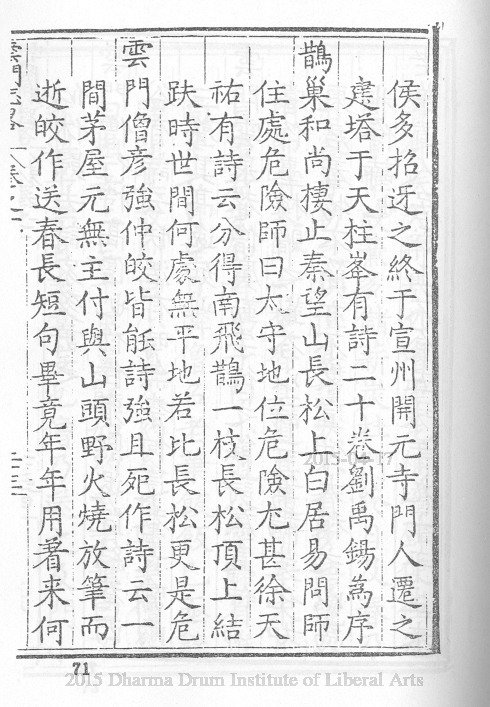 侯多招迓之終于宣州開元寺門人遷之
建塔于天柱峯有詩二十卷劉禹錫為序
鵲巢和尚棲止秦望山長松上白居易問師
住處危險師曰太守地位危險尢甚徐天
祐有詩云分得南飛鵲一枝長松頂上結
趺時世間何處無平地若比長松更是危
雲門僧彦強仲皎皆能詩強且死作詩云一
間茅屋元無主付與山頭野火燒放筆而
逝皎作送春長短句畢竟年年用著来何
雲門志畧 卷之二
二三
71
2015-04-17
2015 Dharma Drum Institute of Liberal Arts